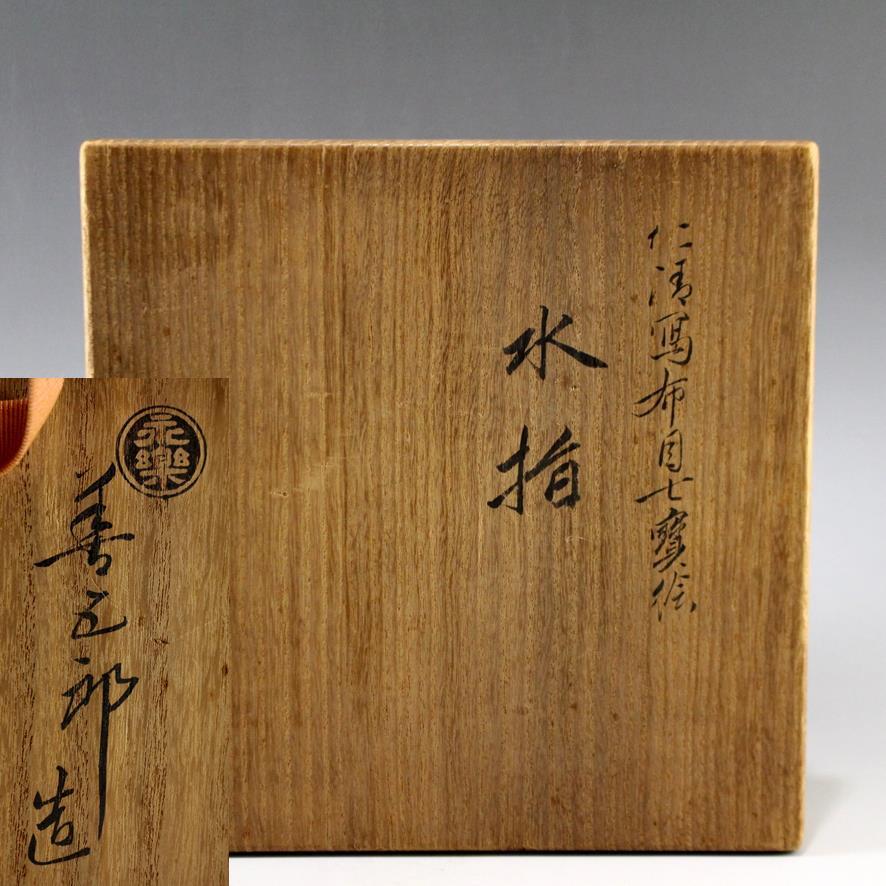 仁清寫布目七寳絵
水指
永樂
善五郎
造